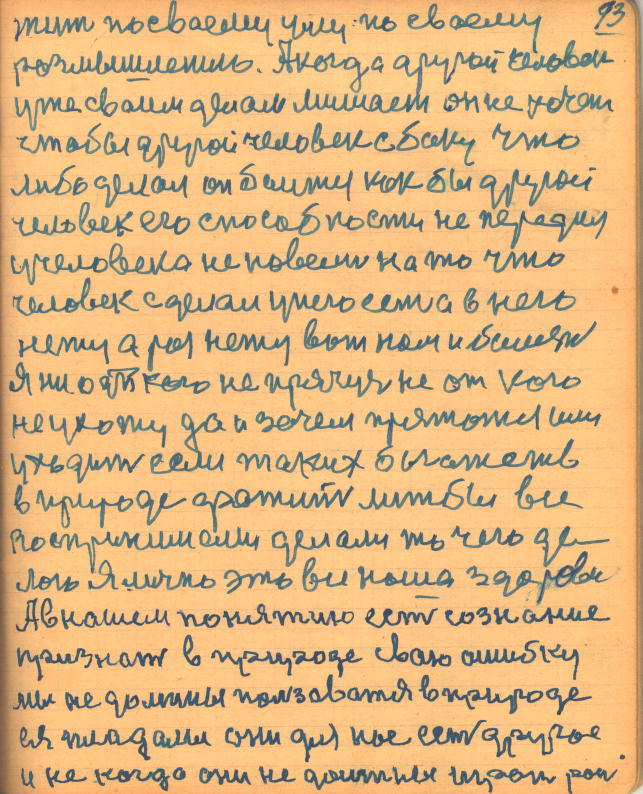 93
жит посваему уму по сваему
розмышлению. Акогда другой человек
уже сваим делам мишает он не хочет
чтобы другой человек сбоку что
либо делал он боится как бы другой
человек его способности не передил
учеловека не повели на то что
человек сделал унего ест а в него
нету а раз нету вот нам и болеят
Я ни от кого не прячуя не от кого
не ухожу да и зачем прятатся или
уходит если таких
в природе лишбы все
воспринимали делали то чего де
лаю Я лично это все наша здоровя
Авнашем понятию ест сознание
признат в природе сваю ошибку
мы не должны ползоватя в природе
ея пладами они для нас ест другое
и не когда они не должны играт рол.